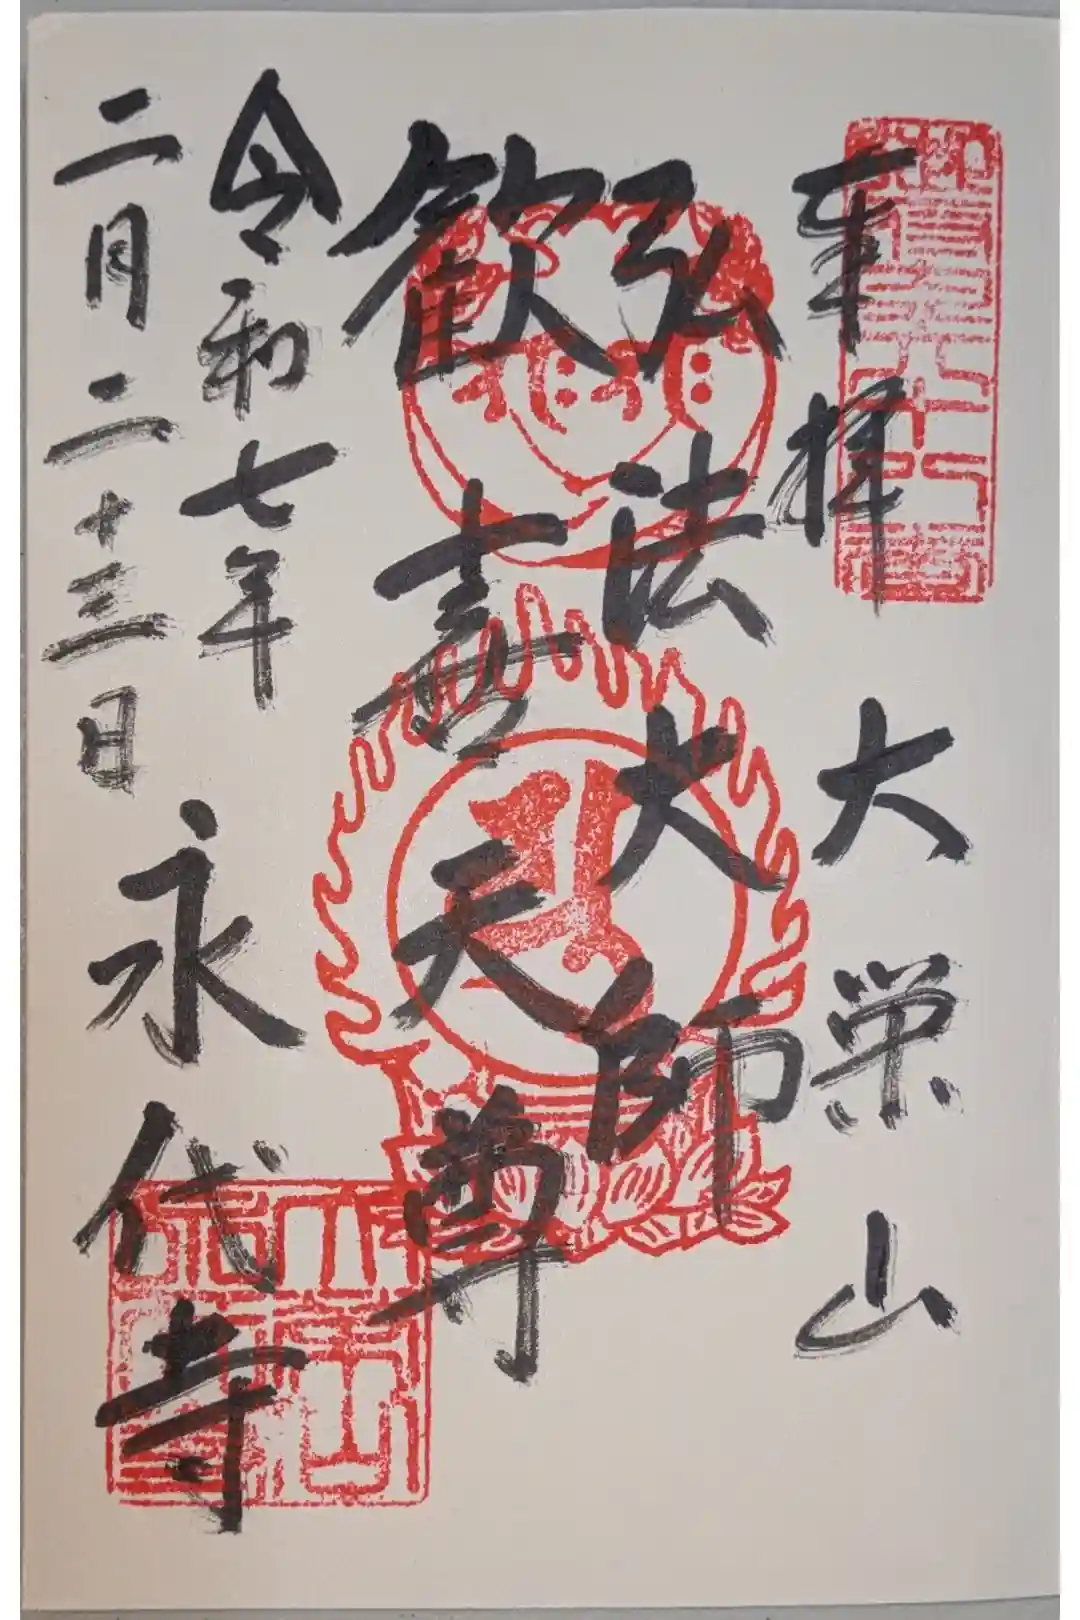 奉拝
大栄山
弘法大師
歓喜天尊
令和七年
二月二十三日
永代寺